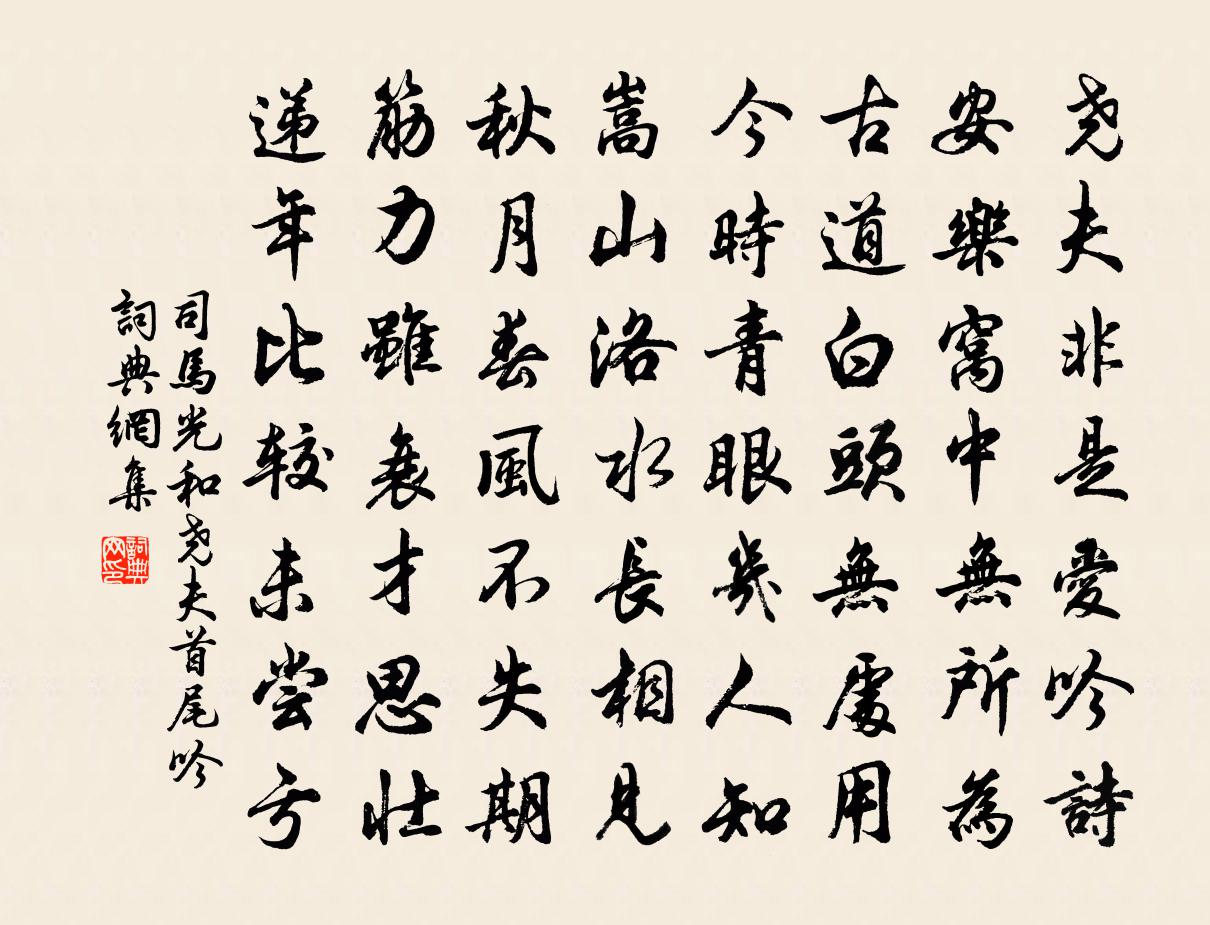 尧夫非是愛吟詩
安樂窩中無所為
古道白頭無處用
今時青眼幾人知
嵩山洛水長相見
秋月春風不失期
筋力雖衰才思壯
递年比较未尝亏
司馬光和尧夫首尾吟
詞典網集
詞典网印